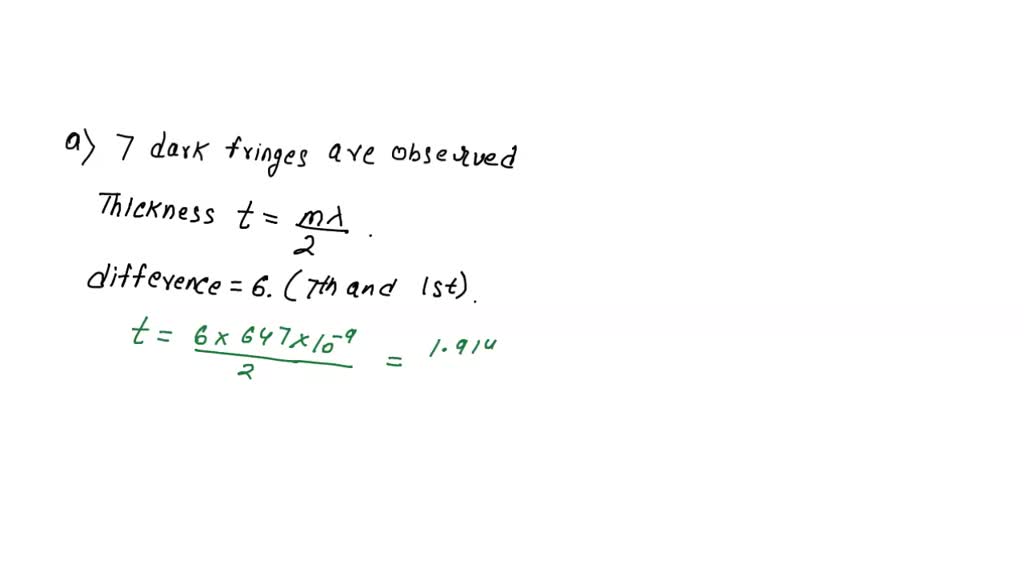 a) 7 dark fringes are observed
Thickness t = mλ/2 .
difference = 6. (7th and 1st).
t = 6 x 647 x 10^-9 / 2 = 1.914